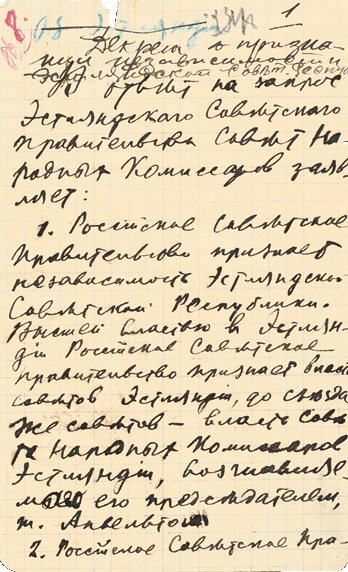 1
Декрет о призна-
нии независимости
Эстляндской Советск. Республ
В ответ на запрос
Эстляндскаго Советскаго
Правительства Совет На-
родных Комиссаров заяв-
ляет:
1. Российское Советское
Правительство признает
независимость Эстляндской
Советской Республики.
Высшей властью в Эстлян-
дии Российское Советское
правительство признает власть
советов Эстляндии, до съезда
же советов — власть Сове-
та Народных Комиссаров
Эстляндии, возглавляе-
мый его председателем,
т. Анвельтом
2. Российское Советское Пра-